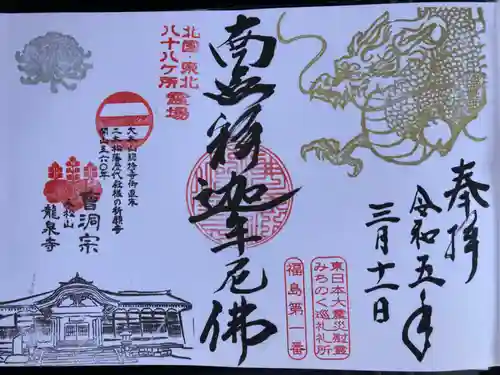 奉拝
令和五年
三月十一日
東日本大震災慰霊
みちのく巡礼札所
福島第一番
南無釋迦牟尼佛
北国・東北
八十八ケ所 霊場
大本山總持寺御直末
二本松藩歴代殿様の祈願寺
開山至六〇年
曹洞宗
龍泉寺